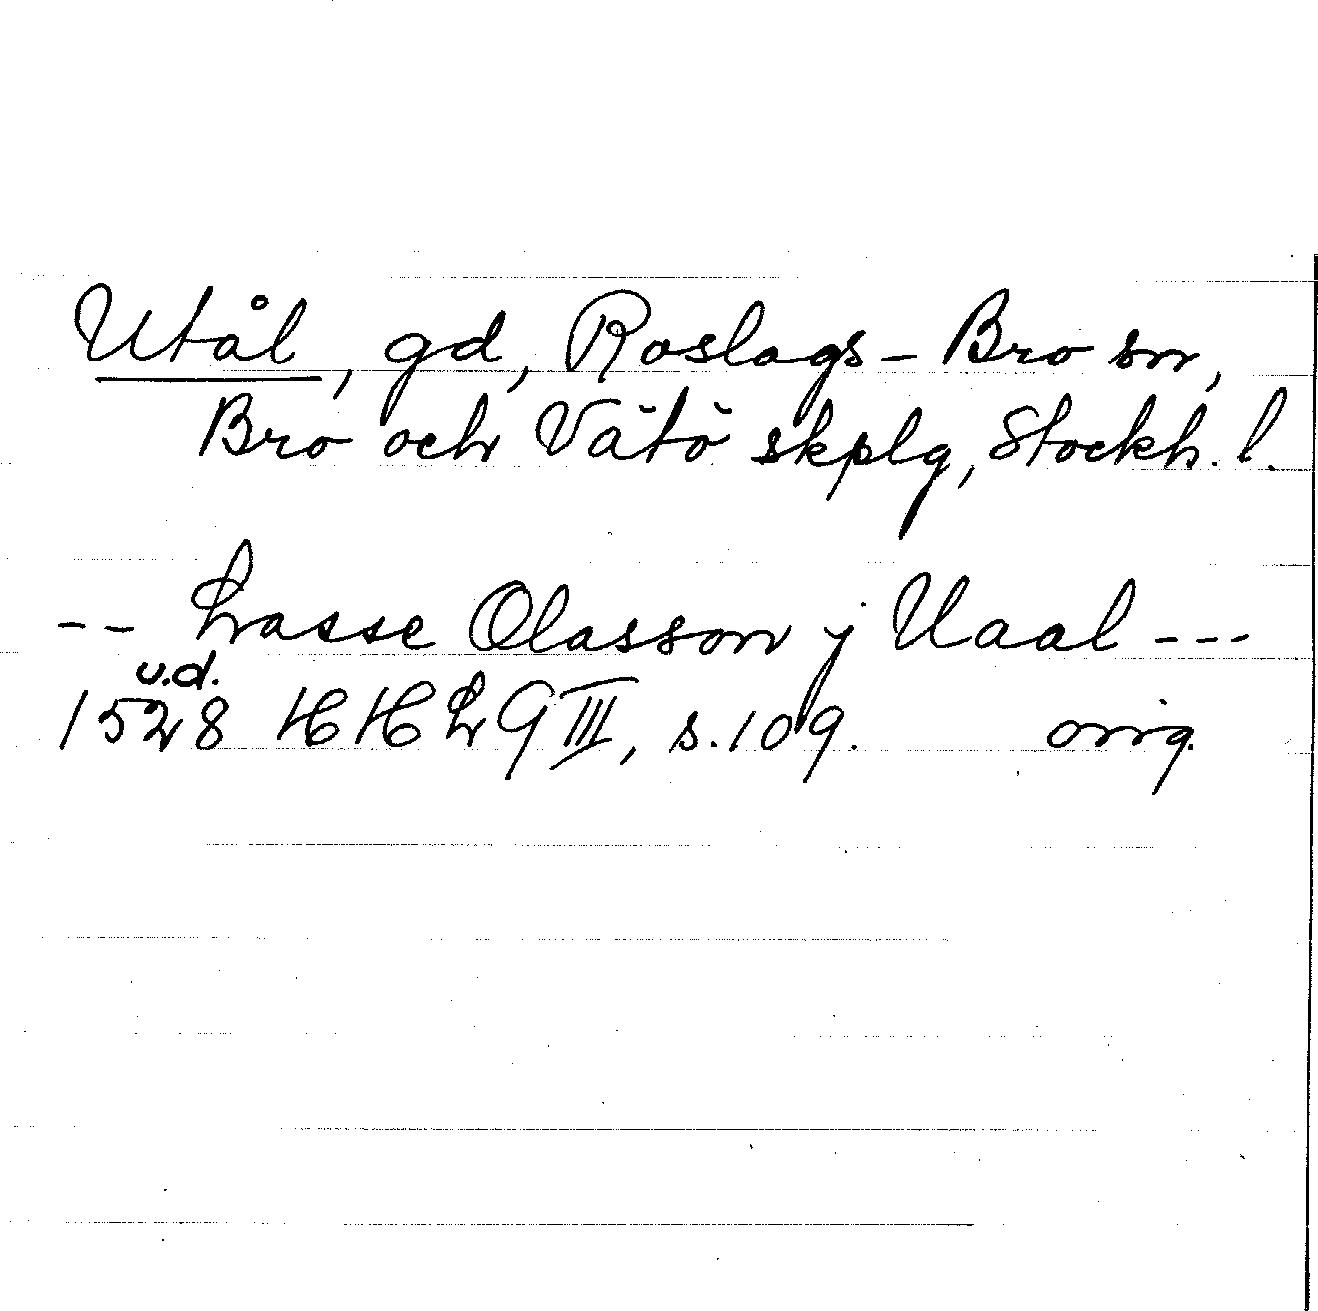 Utål, gd, Roslags-Bro sn,
Bro och Vätö skplg, Stockh. l.
-- Lasse Olasson j Uaal ---
u.d.
1528 HHLG III, s. 109. orig.